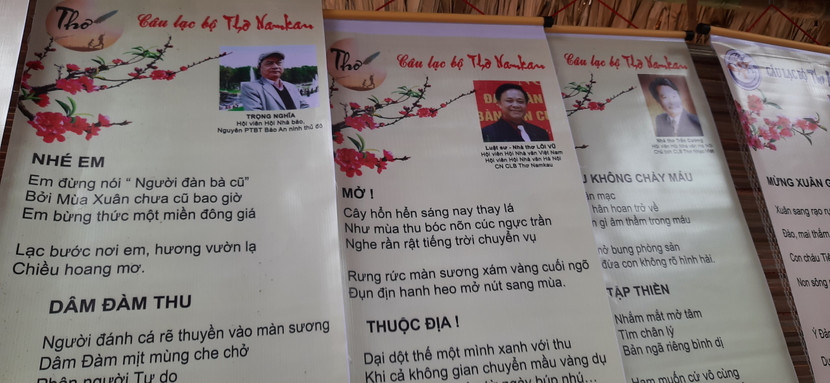 Thơ
Câu lạc bộ Thơ Namkau
TRỌNG NGHĨA
Hội viên Hội Nhà báo,
Nguyên PTBT Báo An ninh thủ đô
NHÉ EM
Em đừng nói “ Người đàn bà cũ”
Bởi Mùa Xuân chưa cũ bao giờ
Em bừng thức một miền đông giá
Lạc bước nơi em, hương vườn lạ
Chiều hoang mơ.
DÂM ĐÀM THU
Người đánh cá rẽ thuyền vào màn sương
Dâm Đàm mịt mùng che chở
Phận người Tự do
Thơ
Câu lạc bộ Thơ Namkau
Luật sư - Nhà thơ LÔI VŨ
Hội viên Hội Nhà văn Việt Nam
Hội viên Hội Nhà văn Hà Nội
CN CLB Thơ Namkau
MỞ !
Cây hổn hển sáng nay thay lá
Như mùa thu bóc nõn cúc ngực trần
Nghe rần rật tiếng trời chuyển vụ
Rưng rức màn sương xám vàng cuối ngõ
Đụn địn hanh heo mở nút sang mùa.
THUỘC ĐỊA !
Dại dột thế một mình xanh với thu
Khi cả không gian chuyển mầu vàng dụ
Câu lạc bộ Thơ Namkau
KHÔNG CHẢY MÁU
mạc
hân hoan trở về
gì âm thầm trong máu
nở bung phòng sản
đứa con không rõ hình hài.
TẬP THIỀN
Nhắm mắt mở tâm
Tìm chân lý
Bản ngã riêng bình dị
Ham muốn cứ vô cùng
CÂU LẠC BỘ
MỪNG XUÂN
Xuân sang rạo
Đào, mai thắm
Con cháu
Non sông
Ý Đả